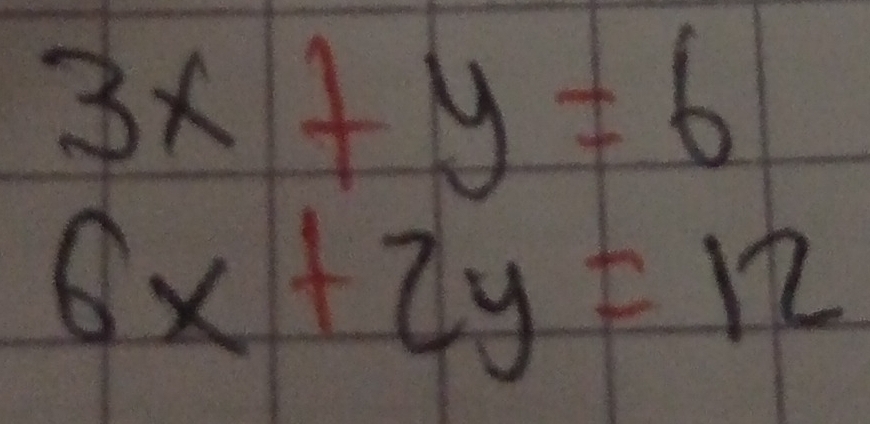 3x + y = 6
6x + 2y = 12